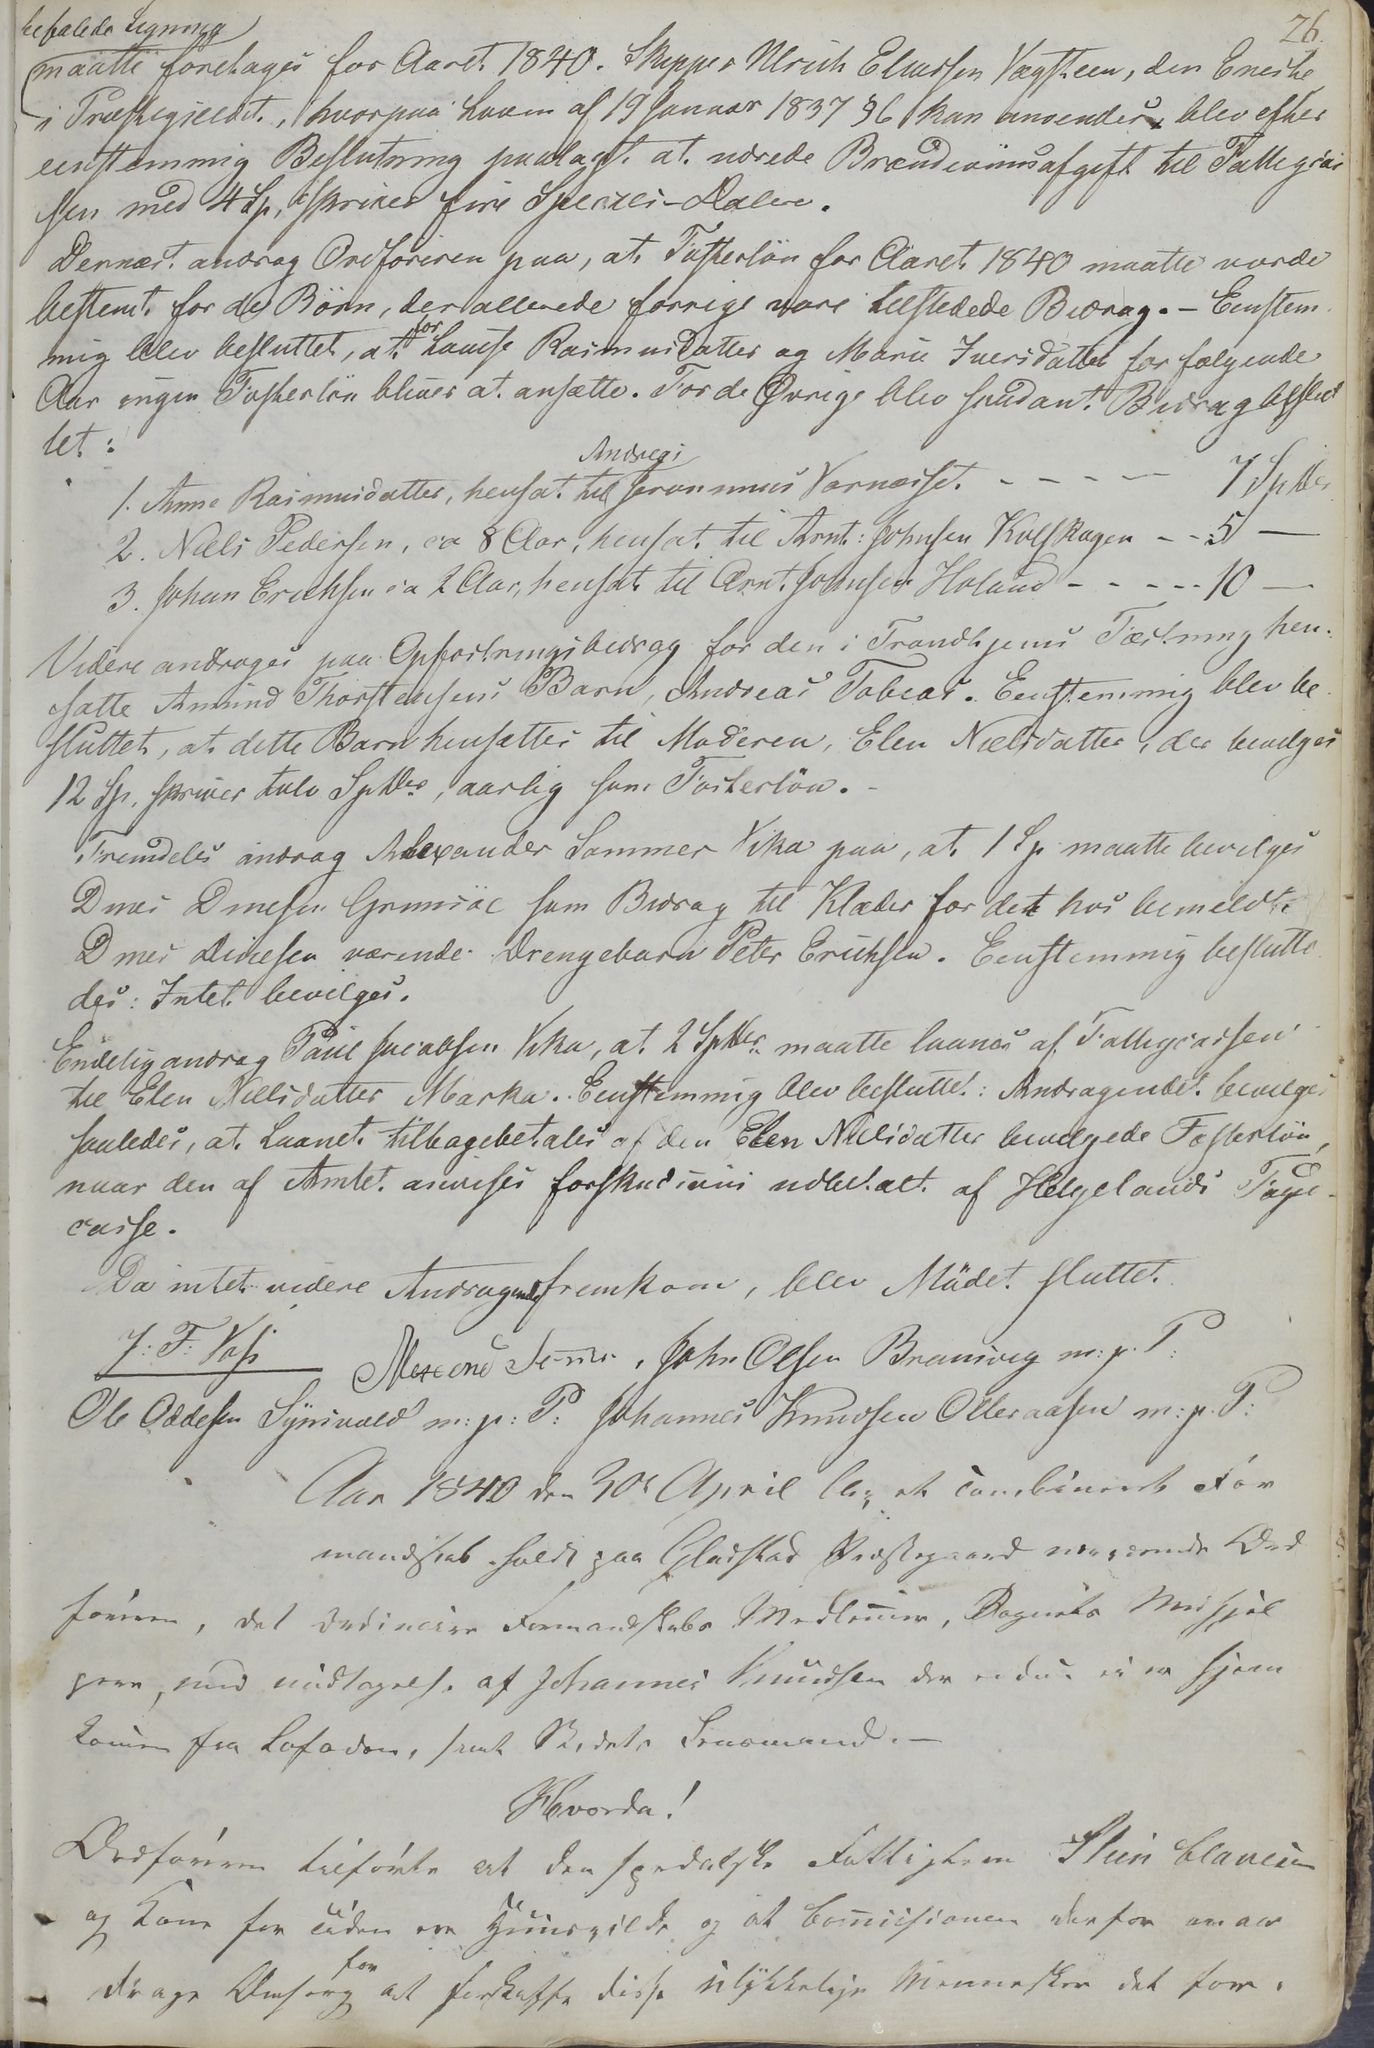 26.
befalede Ligning
maatte foretages for Aaret 1840. Skipper Ulrich Eliassen Vægsteen, den Eneste
i Præstegjeldet, hvorpaa Loven af 19 Januar 1837 §6 kan anvendes, blev efter
eenstemmig Beslutning paalagt at udrede Brændeviinsafgift til Fattigcas
sen med 4 Sp, skriver fire Species-Daler.
Dernæst androg Ordføreren paa, at Fosterløn for Aaret 1840 maatte vorde
bestemt for de Børn, der allerede forrige vare tilstedede Bidrag. - Eenstem
mig blev besluttet, at for Lovise Rasmusdatter og Marie Iversdatter for følgende
Aar ingen Fosterløn bliver at ansætte. For de Øvrige blev saadant Bidrag beslut
tet:
1. Anne Rasmusdatter, hensat til Andreas Jeronimus Vornæsset - - - - - 7 Spdlr
2. Niels Pedersen, ca 8 Aar, hensat til Arnt Johnsen Kulskagen - - 5 —
3. Johan Erichsen ca 2 Aar, hensat til Arnt Johnsen Holand - - - - - 10 —
Videre androges paa Opfostringsbidrag for den i Trondhjems Fæstning hen-
satte Amund Thorstensens Barn, Andreas Tobias. Eenstemmig blev be
sluttet, at dette Barn hensættes til Moderen, Elen Nielsdatter, der bevilges
12 Sp, skriver tolv Spdlr, aarlig som Fosterløn. -
Fremdeles androg Alexander Sommer Vika paa, at 1 Sp maatte bevilges
Dines Dinesen som Bidrag til Klæder for det hos bemeldte
Dines Dinesen værende Drengebarn Peter Erichsen. Eenstemmig beslutte
des: Intet bevilges.
Endelig androg Paul Jacobsen Vika, at 2 Spdlr maatte laanes af Fattigcassen
til Elen Nielsdatter Marka. Eenstemmig blev besluttet: Andragendet bevilges
saaledes, at Laanet tilbagebetales af den Elen Nielsdatter bevilgede Fosterløn,
naar den af Amtet anvises forskudsviis udbetalt af Helgelands Fogd-
casse.
Da intet videre Andragende fremkom, blev Mødet sluttet.
J: F: Voss John Olsen Bremsveg m: p. P:
Ole Oddesen m: p: P: Johannes Knudsen Olleraasen m: p. P:
Aar 1840 den 30te April blev et combineret For
mandskab holdt paa Gladstad Præstegaard nærværende Ord
føreren, det ordinaire Formandskabs Medlemmer, Sognets Medhjel
pere, med undtagelse af Johannes Knudsen der endnu ei er hjem
kommen fra Lofoden, samt Stedets Lensmand. —
Hvorda!
Ordføreren tilførte at den spedalske Fattiglem Stein Clausen
og Kone for Tiden ere huusvilde og at Comissionen derfor maa
drage Omsorg for at forskaffe disse ulykkelige Mennesker det for-